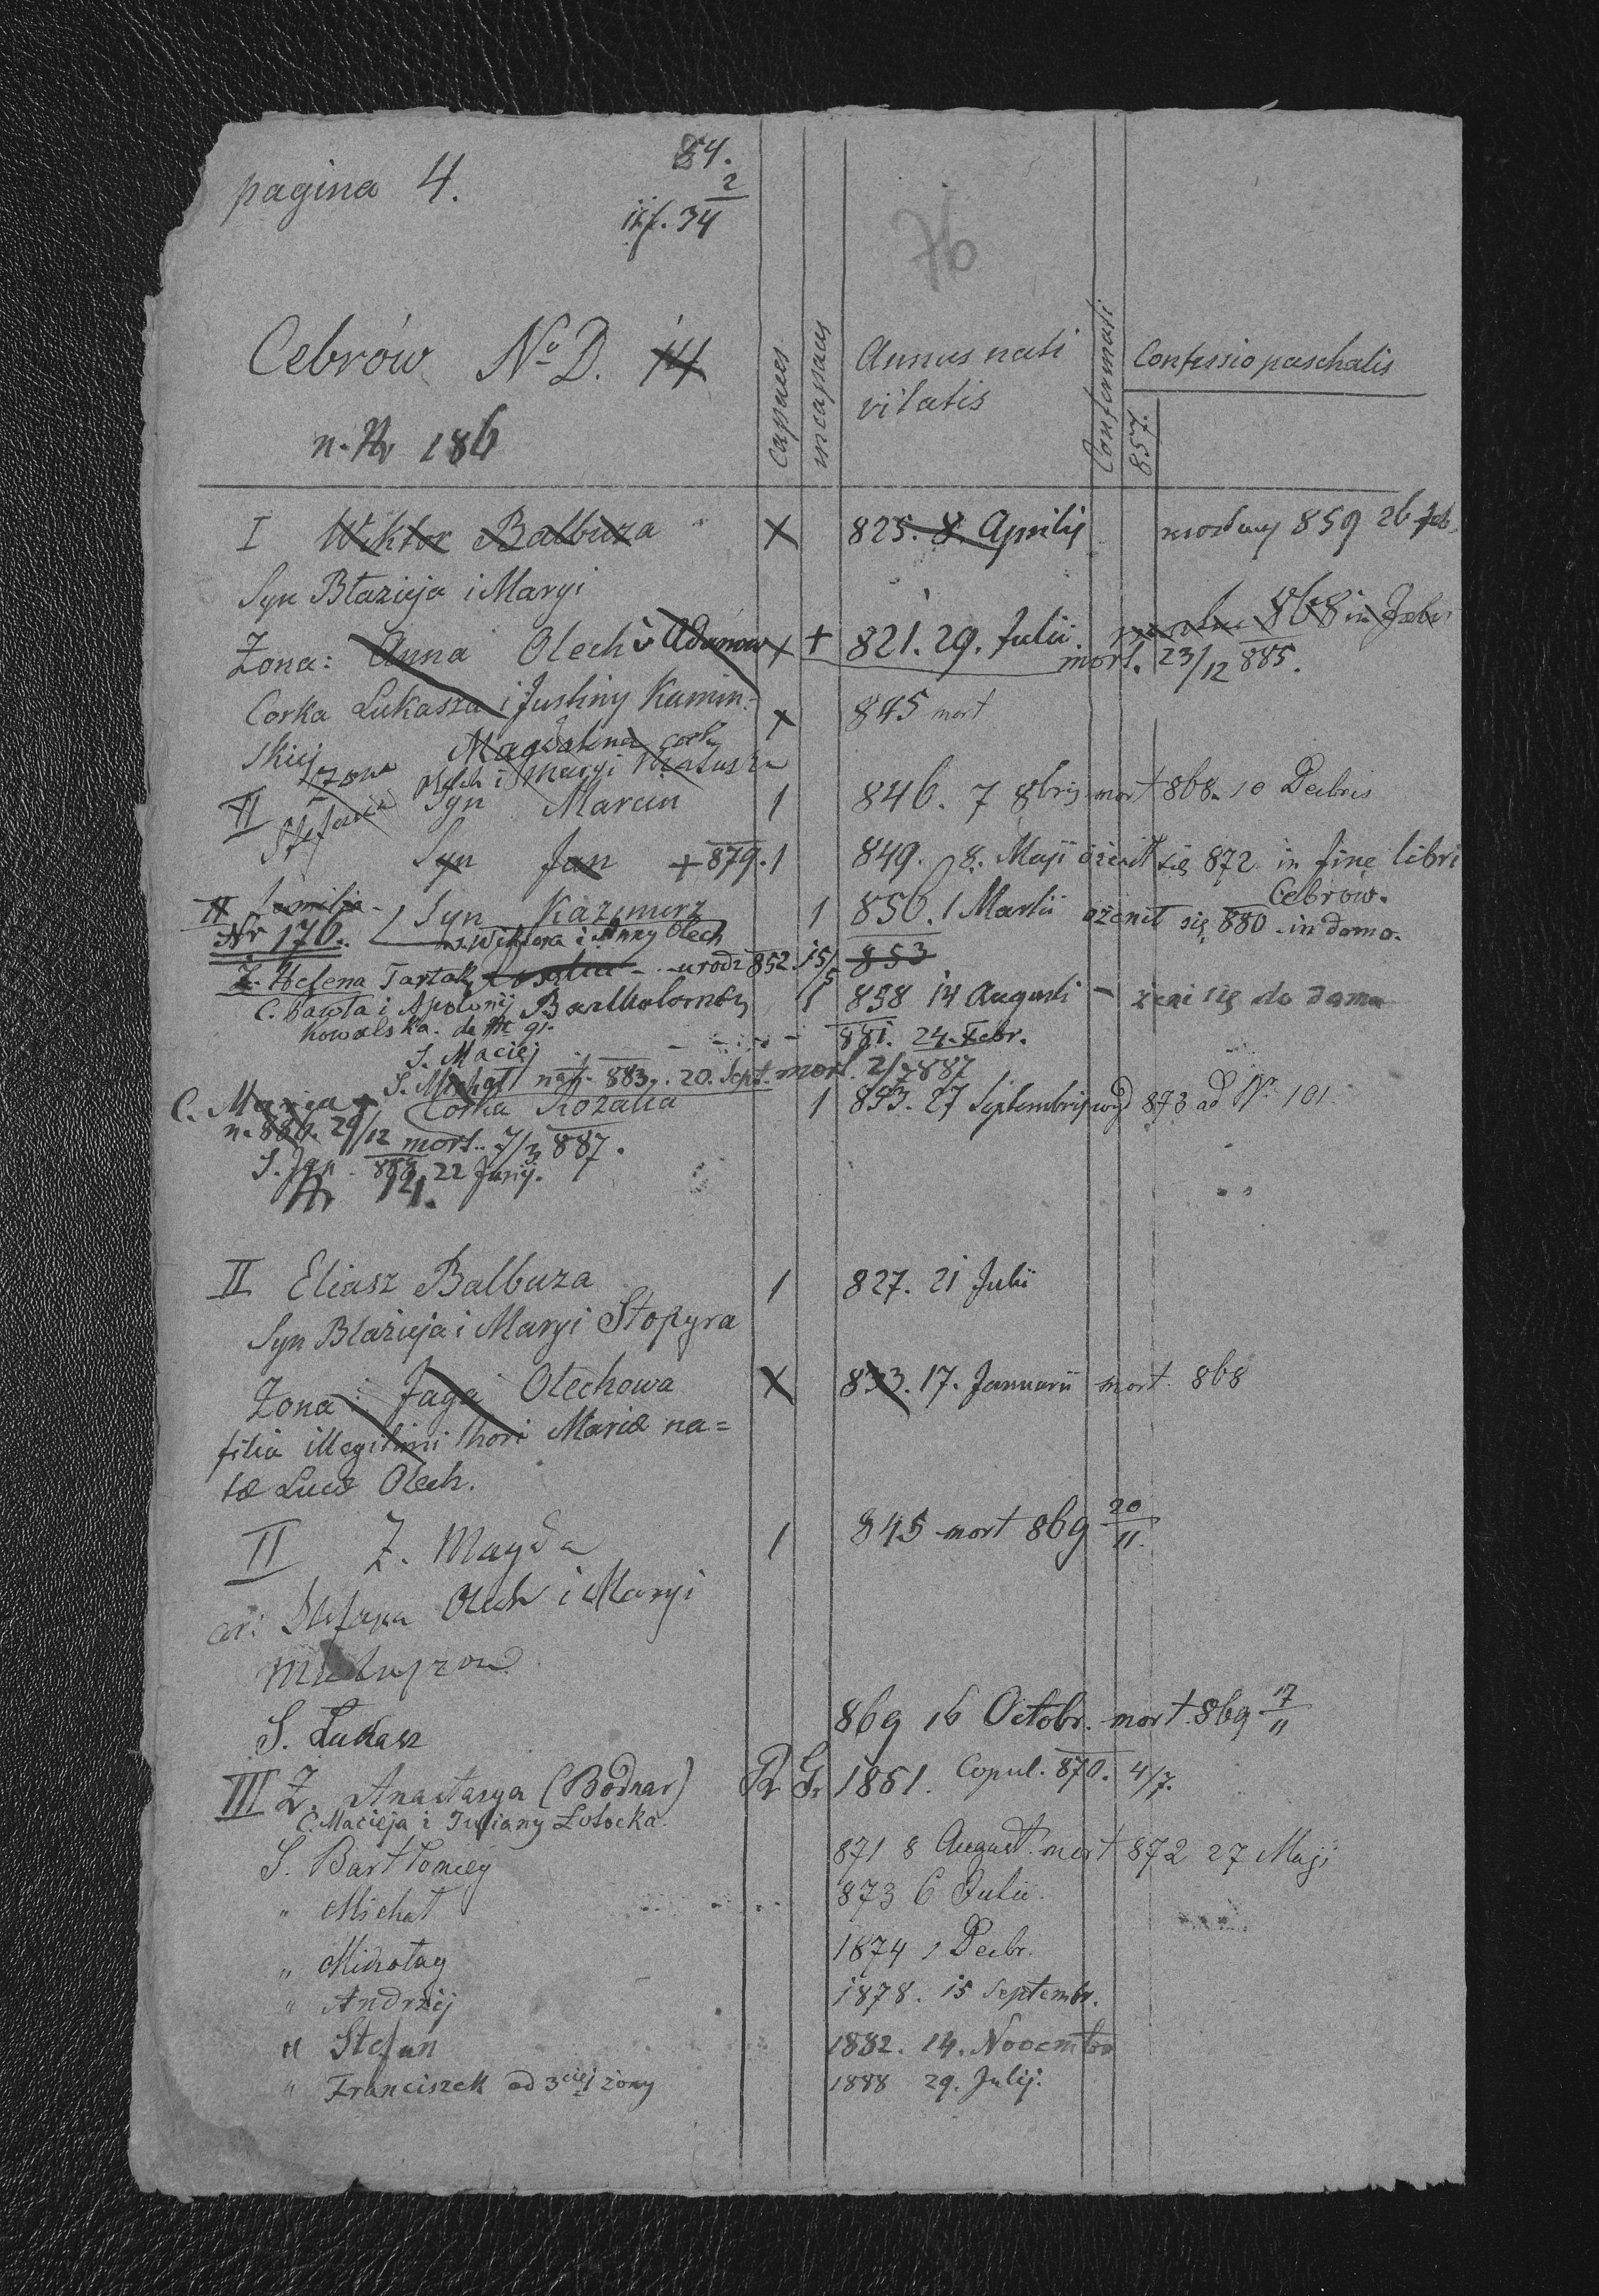 pagina 4.
84.
2
34
76
Cebrów No D. 14
n. Nr 186
Capaces
incapaces
Annus nati
vitatis
Confirmati
Confessio paschalis
857.
I Wiktor Balbuza X 825. 8. Aprilis 859 26 feb.
Syn Błażeja i Maryi
Żona: Anna Olech v Adamow X + 821. 29. Julii. 868 in Febr
mort. 23/12 885.
Corka Lukasza i Justiny Kamin-
skiej X 845 mort
Magdalena corka
żona Olech i Maryi
II Stefania Syn Marcin 1 846. 7 8bris mort 868. 10 Decbris
Syn Jan + 879. 1 849. 8. Maji ożenił się 872 in fine libri
Cebrów.
II familia - Syn Kazimierz 1 850. 1 Martii ożenił się 880 in domo.
Nr 176. s. Wiktora i Anny Olech
Ż. Helena Tartak - urodz 852. 15/5 853
C. Pawła i Apolonij Bartholomey 1 858 14 Augusti - żeni się do domu
Kowalska. de Nr 91.
S. Maciej - - - - 881. 24. Febr.
S. Michał nat. 883. 20. Sept. mort. 2/7 887
C. Marya Corka Rozalia 1 853. 27 Septembris wyd 873 ad Nr. 101.
n. 886. 29/12 mort. 7/3 887.
S. Jan 888 22 Junij.
Nr 121.
II Eliasz Balbuza 1 827. 21 Julii
Syn Błażeja i Maryi Stopyra
Żona: Jaga Olechowa X 833. 17. Januarii mort. 868
filia illegitimi thori Mariæ na=
tæ Lucæ Olech.
II Z. Magda 1 845 mort 869 20/11.
cor: Stefana Olech i Maryi
S. Łukasz 869 16 Octobr. mort. 869 17/11
III Ż. Anastasya (Bodnar) R. Gr. 1851. Copul. 870. 4/7.
C. Macieja i Juliany Łotocka.
S. Bartłomiej 871 8 August. mort 872 27 Maji
" Michał 873 6 Julii.
" Mikołaj 1874 1 Decbr.
" Andrzej 1878. 15 Septembr.
" Stefan 1882. 14. Novembr
" Franciszek od 3ciej żony 1888 29. Julij.